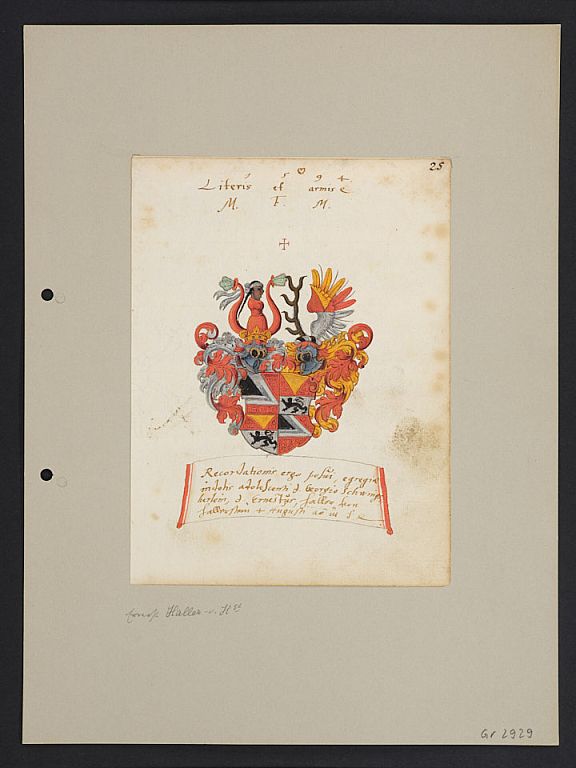 25
1 5 9 4
Literis et armis
M. F. M.
Recordationis ergo posui, egregiæ
indolis adolescenti d. Georgio Schwing
herlein, d. Ernestus Haller von
Hallerstein 4 Augusti aō ut s.
Ernst Haller v. H
Gr 2929